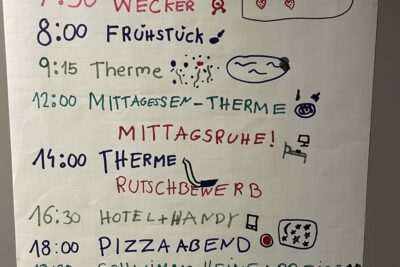 7:30 WECKER
8:00 FRÜHSTÜCK
9:15 Therme
12:00 MITTAGESSEN-THERME
MITTAGSRUHE!
14:00 THERME
RUTSCHBEWERB
16:30 HOTEL+HANDY
18:00 PIZZAABEND